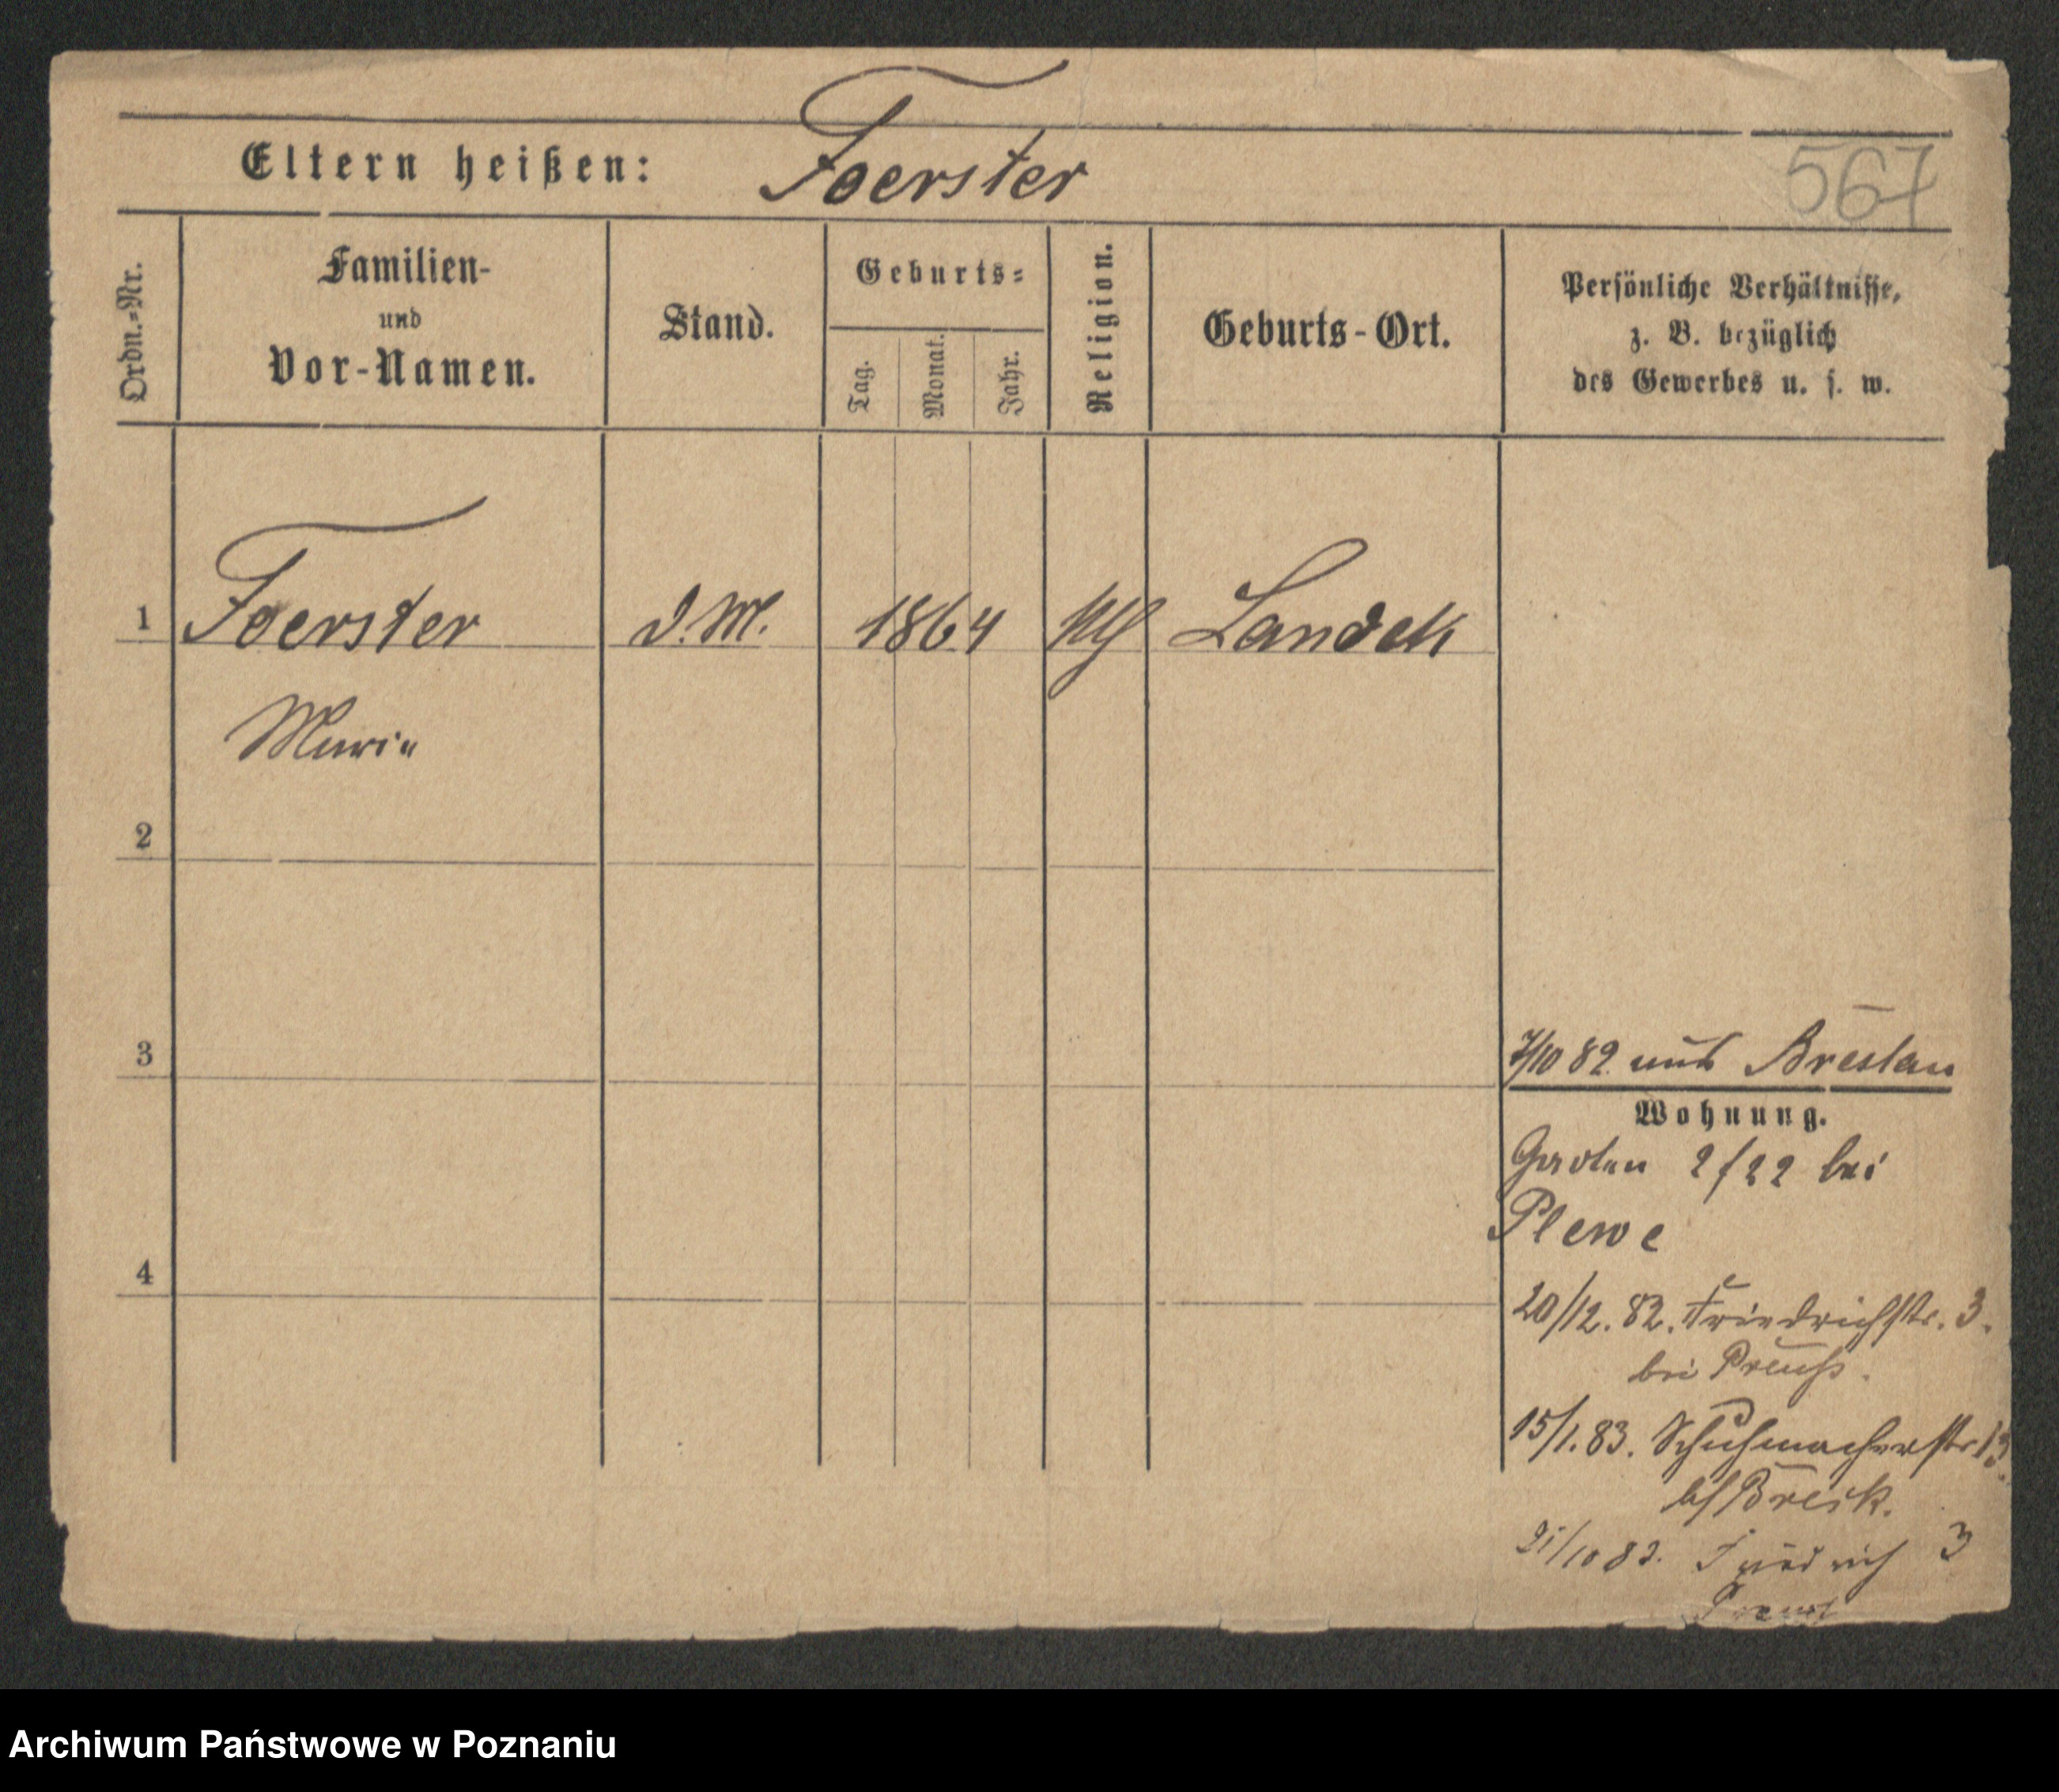 Eltern heißen: Foerster
567
Ordn.=Nr.
Familien-
und
Vor-Namen.
Stand.
Geburts=
Tag.
Monat.
Jahr.
Religion.
Geburts-Ort.
Persönliche Verhältnisse,
z. B. bezüglich
des Gewerbes u. s. w.
1 Foerster D.M. 1864 Landek
Marie
2
3
7/10 82 aus Breslau
Wohnung.
Garten 2/22 bei
Plewe
4
20/12. 82. Friedrichstr. 3.
bei Preuß.
15/1. 83. Schuhmacherstr 13.
bei Breik.
21/10 83. Friedrich 3
Archiwum Państwowe w Poznaniu